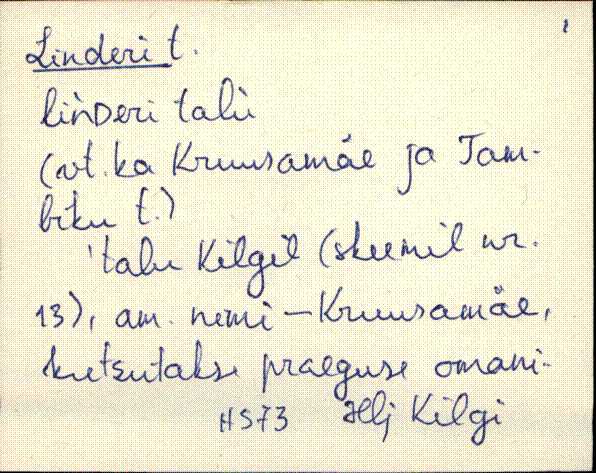 1
Linderi t.
linDeri talu
(vt. ka Kruusamäe ja Tam-
biku t.)
'talu Kilgil (skeemil nr.
13), am. nimi – Kruusamäe,
kutsutakse praeguse omani-
HS73 Hlj Kilgi